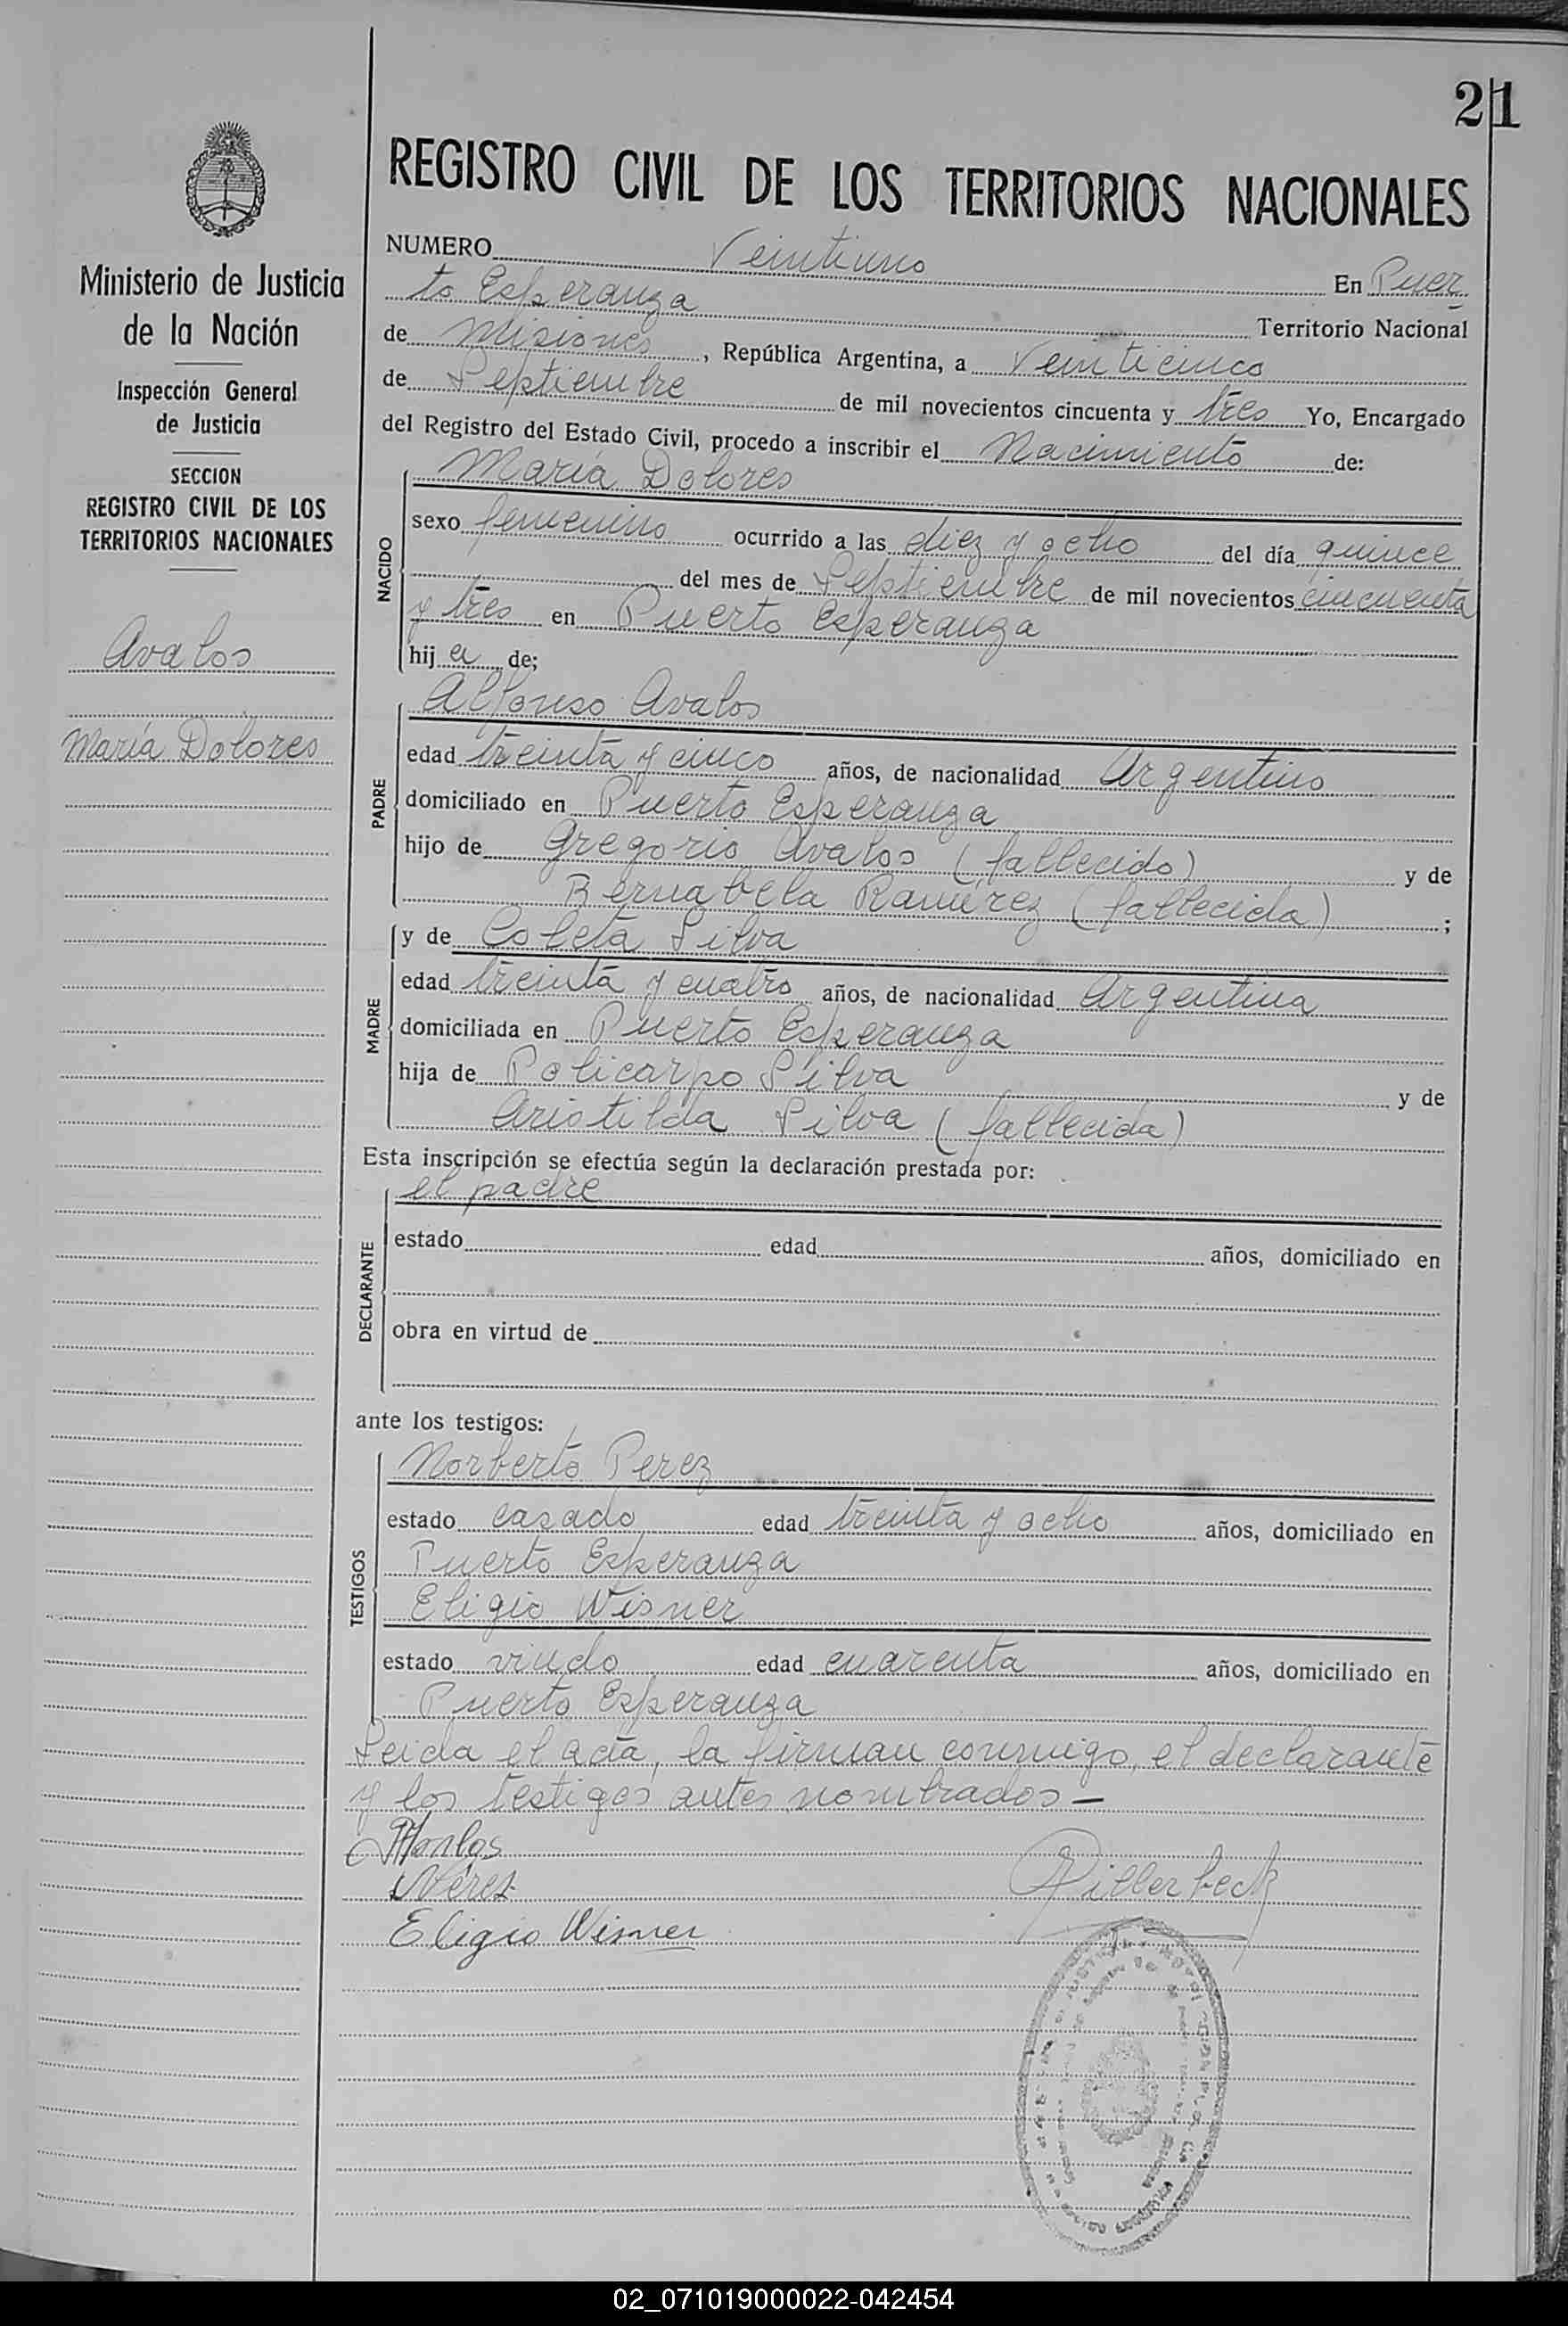 21
REGISTRO CIVIL DE LOS TERRITORIOS NACIONALES
Ministerio de Justicia
de la Nación
Inspección General
de Justicia
SECCION
REGISTRO CIVIL DE LOS
TERRITORIOS NACIONALES
Avalos
María Dolores
NUMERO Veintiuno En Puer
to Esperanza Territorio Nacional
de Misiones, República Argentina, a Veinticinco
de Septiembre de mil novecientos cincuenta y tres Yo, Encargado
del Registro del Estado Civil, procedo a inscribir el Nacimiento de:
NACIDO
María Dolores
sexo femenino ocurrido a las diez y ocho del día quince
del mes de Septiembre de mil novecientos cincuenta
y tres en Puerto Esperanza
hij a de;
PADRE
Alfonso Avalos
edad treinta y cinco años, de nacionalidad Argentino
domiciliado en Puerto Esperanza
hijo de Gregorio Avalos (fallecido) y de
Bernabela Ramírez (fallecida) ;
MADRE
y de Coleta Silva
edad treinta y cuatro años, de nacionalidad Argentina
domiciliada en Puerto Esperanza
hija de Policarpo Silva y de
Aristilda Silva (fallecida)
Esta inscripción se efectúa según la declaración prestada por:
DECLARANTE
el padre
estado edad años, domiciliado en
obra en virtud de
ante los testigos:
TESTIGOS
Norberto Perez
estado casado edad treinta y ocho años, domiciliado en
Puerto Esperanza
Eligio Wisner
estado viudo edad cuarenta años, domiciliado en
Puerto Esperanza
Leida el acta, la firman conmigo, el declarante
y los testigos antes nombrados —
NPerez
Eligio Wisner
02_071019000022-042454